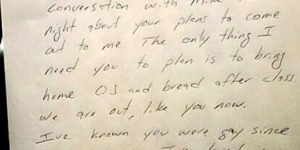 conversation with Mike
night about your plans to come
out to me. The only thing I
need you to plan is to bring
home OJ and bread after class.
We are out, like you now.
I've known you were gay since